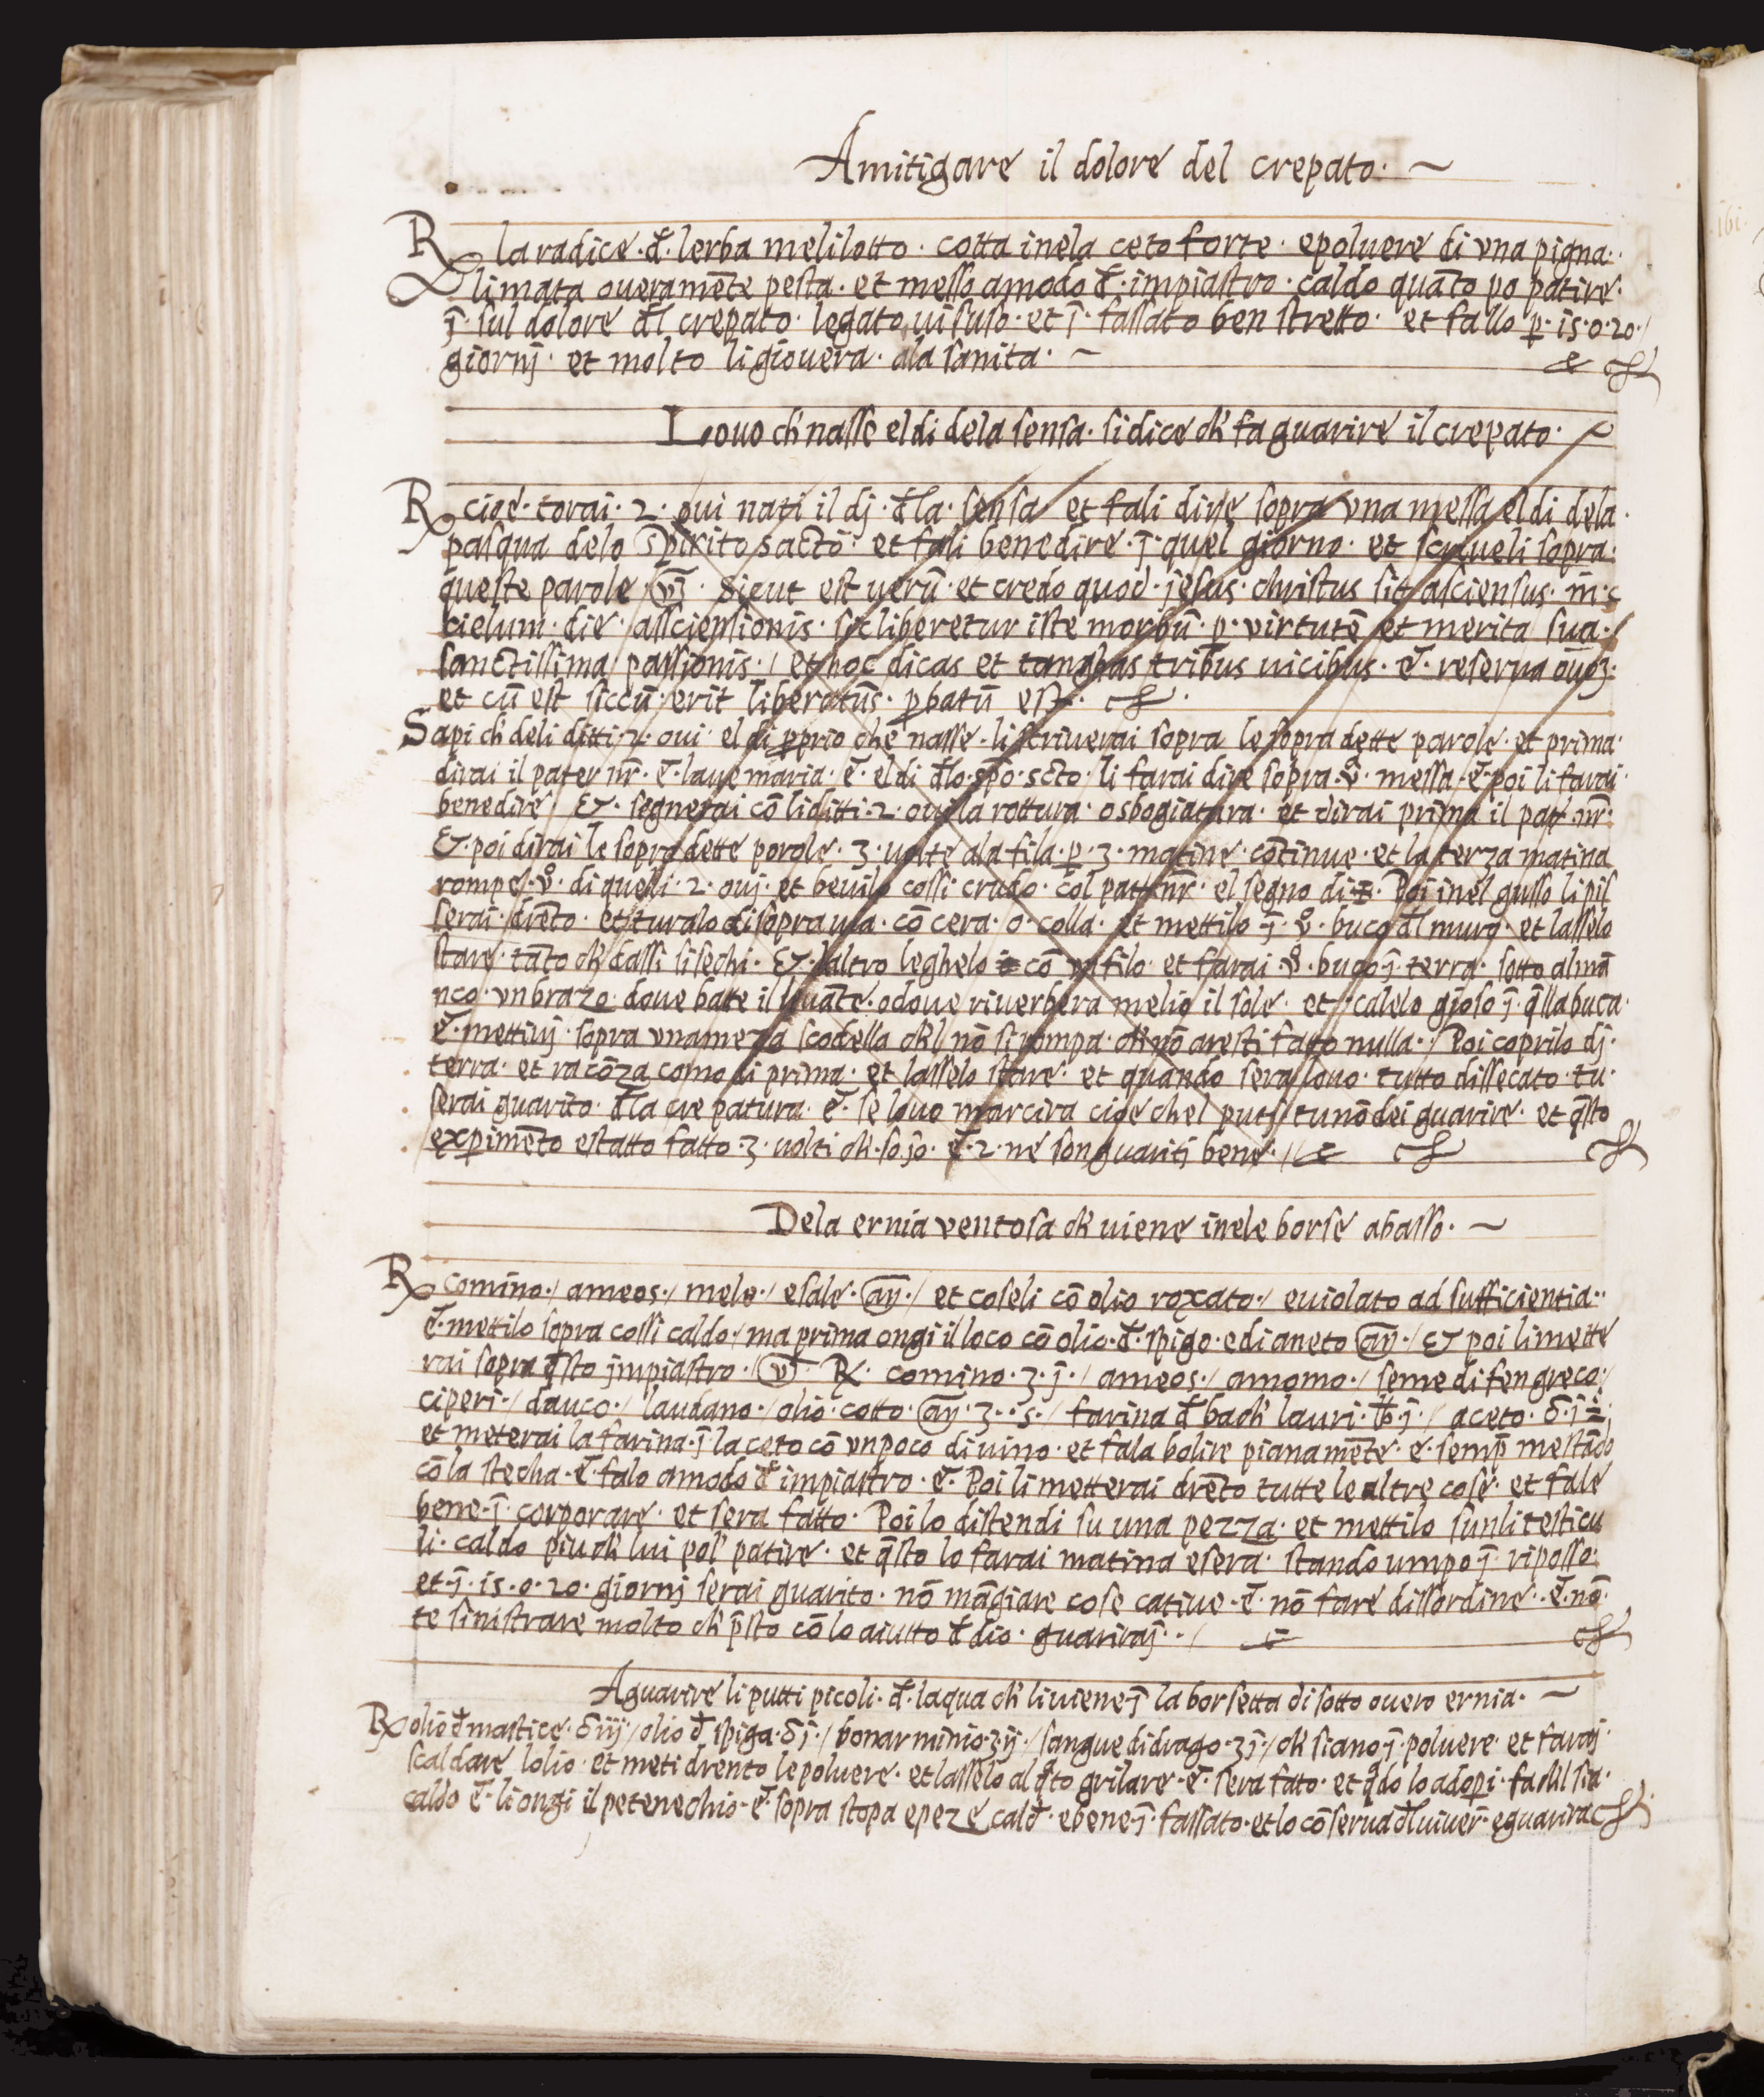 Amitigare il dolore del crepato · ~
℞ la radice · đ · lerba melilotto · cotta inela ceto forte · epoluere di vna pigna ·
limata oueramēte pesta · et messo amodo đ · impiastro · caldo quāto po patire ·
j̄ · sul dolore đl crepato · legato ui suso · et j̄ · fassato ben stretto · et fallo p · is · o · 20 ·/
giornj · et molto ligiouera · ala sanita · ~
Louo ch' nasse eldi dela sensa · sidice ch' fa guarire il crepato ·
℞ cioe · torai · 2 · oui nati il dj · đla · sensa / et fali dire sopra vna messa eldi dela ·
pasqua delo spirito sacto · et fali benedire · j̄ · quel giorno · et scriueli sopra ·
queste parole / vj · Sicut est uerū · et credo quod · jesus · christus sit asciensus · in ·
cielum · die · assciensionis · sic liberetur iste morbū · p · virtutē et merita sua ·/
sanctissima / passionis ·/ et hoc dicas et tangas tribus uicibus · ē · reserua
et cū est siccū · erit liberatus · pbatū est ·
Sapi ch' deli ditti · 2 · oui · el di pprio che nasse · li scriuerai sopra le sopra dette parole · et prima ·
dirai il pater nr̄ · ē · laue maria · ē · el di đlo · spō · scto · li farai dire sopra · vª · messa · ē · poi li farai ·
benedire / & · segnerai cō liditti · 2 · oui la rottura · o sbogiatura · et dirai prima il patr̄ · nr̄ ·
& · poi dirai le sopra dette parole · 3 · uolte ala fila · p · 3 · matine · cōtinue · et la terza matina
rompe · vº · di quelli · 2 · ouj · et beuilo cossi crudo · col patr̄ nr̄ · el segno di ✠ · Poi inel gusso lipis
serai · drēto · et sturalo di sopra uia · cō cera · o · colla · et mettilo · j̄ · vº · buco đl muro · et lasselo
stare · tāto ch' cassi si sechi · & · laltro leghelo cō un filo · et farai · vº · bugo j̄ · terra · sotto almā
nco · vn brazo · doue batte il leuāte · o doue riuerbera melio il sole · et calelo gioso j̄ · q̄lla buca ·
ē · mettiuj · sopra vna meza scodella ch'l nō si rompa · ch' nō aresti fatto nulla ·/ Poi coprilo dj ·
terra · et racōza como di prima · et lasselo stare · et quando sera louo · tutto dissecato · tu ·
serai guarito · đla crepatura · ē · se louo marcira cioe chel puti / tu nō dei guarire · et q̄sto
expimēto estatto fatto · 3 · uolti ch' · so jo · ē · 2 · ne son guariti bene ·//
Dela ernia ventosa ch' uiene inele borse abasso · ~
℞ comino ·/ ameos ·/ mele ·/ e sale · añ ·/ et coseli cō olio roxato ·/ euiolato ad sufficientia ··
ē · mettilo sopra cossi caldo ·/ ma prima ongi il loco cō olio · đ · spigo · e di aneto añ ·/ & poi li mette
rai sopra q̄sto jmpiastro ·/ vj · ℞ · comino · ʒ · j ·/ ameos ·/ amomo ·/ seme di fen greco ·/
ciperi ·/ dauco ·/ laudano ·/ olio · cotto · añ · ʒ · · s ·/ farina đ bach' lauri · lb · j ·/ aceto ·
et meterai la farina · j̄ · laceto cō vn poco di uino · et fala bolire piana mēte · e · semp̄ mestādo
cō la stecha · ē · falo amodo đ impiastro · ē · Poi li metterai drēto tutte le altre cose · et fale
bene · j̄ · corporare · et sera fatto · Poi lo distendi su una pezza · et mettilo sunli testicu
li · caldo piu ch' lui pol' patire · et q̄sto lo farai matina e sera · stando umpo j̄ · riposso ·
et · j̄ · is · o · 20 · giornj serai guarito · nō māgiare cose catiue · ē · nō fare dissordine · ē · nō ·
te sinistrare molto ch' p̄sto cō lo aiutto đ dio · guarirai · ·/
Aguarire li putti picoli · đ · laqua ch' li uiene · j̄ · la borsetta di sotto ouero ernia · ~
℞ olio đ mastice · iij ·/ olio đ spiga · j ·/ bonarminio · ʒ · ij ·/ sangue di drago · ʒ j ·/ ch' siano j̄ · poluere · et faraj ·
scaldare lolio · et meti drento lepoluere · et lasselo alq̄to grilare · ē · sera fato · et qdo lo adopi · fa ch'l sia ·
caldo ē · li ongi il petenechio · ē · sopra stopa e peze cald' · e bene · j̄ · fassato · et lo cōserua đl uiuer̄ · e guarira